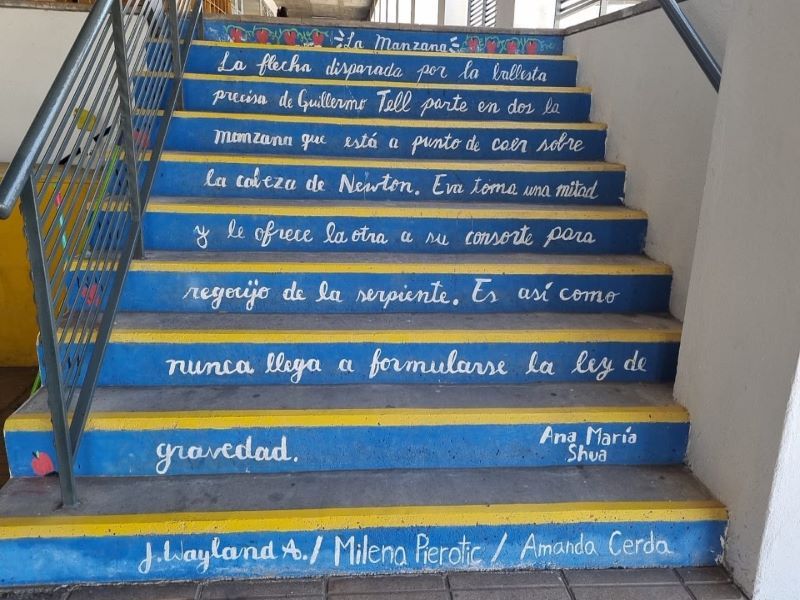 La Manzana
La flecha disparada por la ballesta
precisa de Guillermo Tell parte en dos la
manzana que está a punto de caer sobre
la cabeza de Newton. Eva toma una mitad
y le ofrece la otra a su consorte para
regocijo de la serpiente. Es así como
nunca llega a formularse la ley de
gravedad.
Ana María
Shua
J. Wayland A. / Milena Pierotic / Amanda Cerda